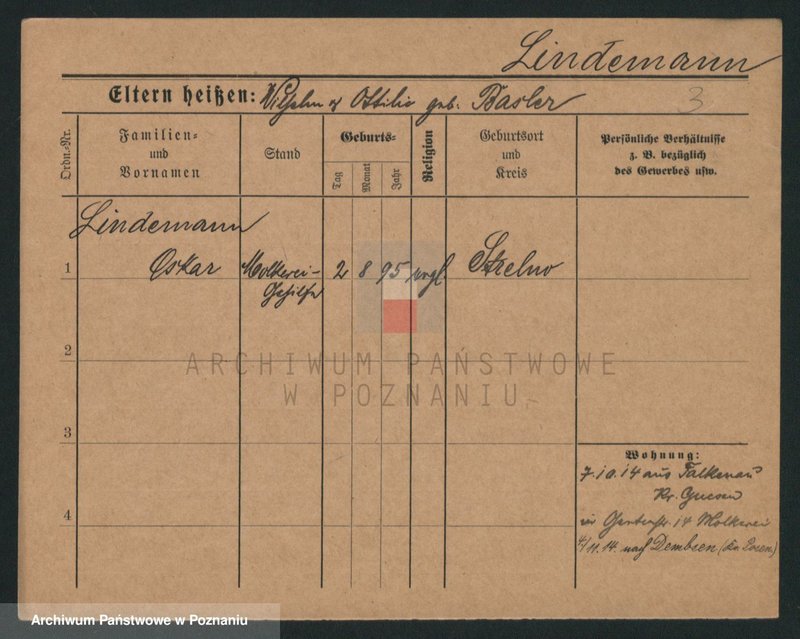 Lindemann
Eltern heißen: Wilhelm u Ottilie geb. Basler 3
Ordn.-Nr.
Familien-
und
Vornamen
Stand
Geburts-
Tag
Monat
Jahr
Religion
Geburtsort
und
Kreis
Persönliche Verhältnisse
z. B. bezüglich
des Gewerbes usw.
Lindemann
1 Oskar Molkerei- 2 8 95 evgl. Strelno
Gehilfe
2
ARCHIWUM PAŃSTWOWE
W POZNANIU
3
Wohnung:
7.10.14 aus Falkenau
Kr. Gnesen
14 Molkerei
4
4/11.14. nach Dembsen (Kr. Posen)
Archiwum Państwowe w Poznaniu